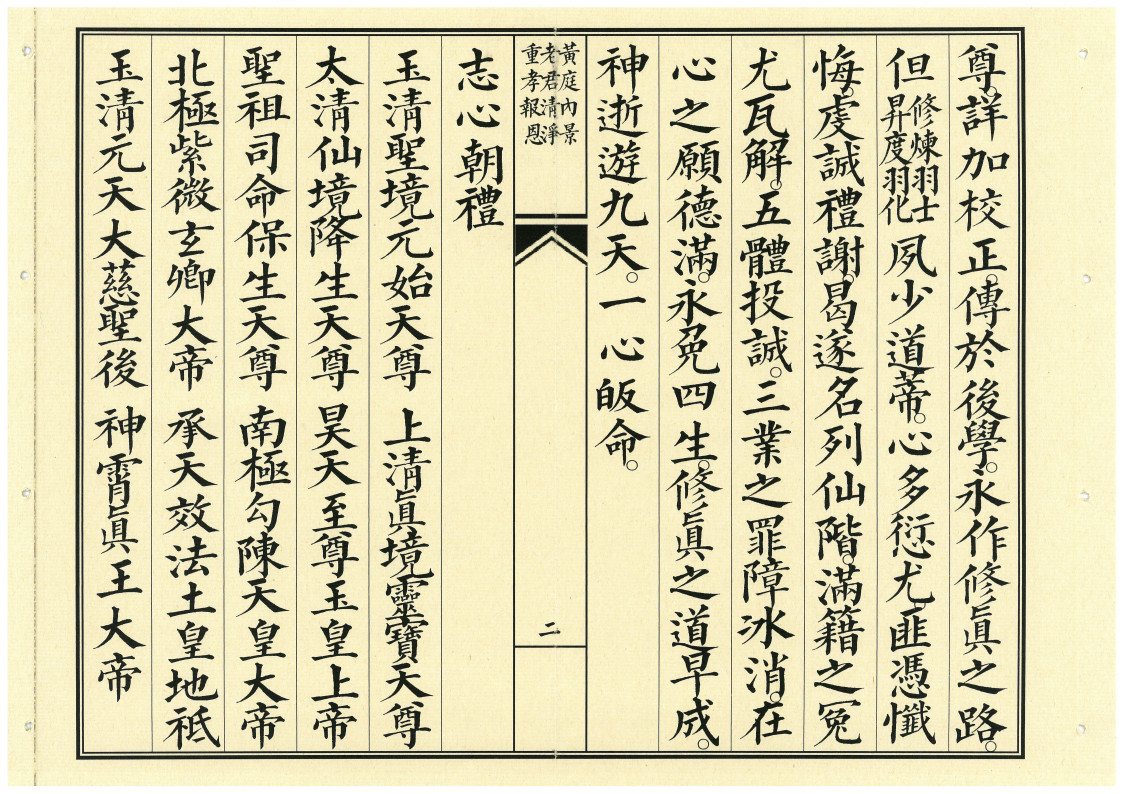 尊。詳加校正。傳於後學。永作修眞之路。
但修煉羽士昇度羽化夙少道蒂。心多愆尤。匪憑懺
悔。虔誠禮謝。曷遂名列仙階。滿籍之冤
尤瓦解。五體投誠。三業之罪障冰消。在
心之願德滿。永免四生。修眞之道早成。
神逝遊九天。一心皈命。
黃庭內景
老君清淨
重孝報恩
二
志心朝禮
玉清聖境元始天尊 上清眞境靈寶天尊
太清仙境降生天尊 昊天至尊玉皇上帝
聖祖司命保生天尊 南極勾陳天皇大帝
北極紫微玄卿大帝 承天效法土皇地祇
玉清元天大慈聖後 神霄眞王大帝